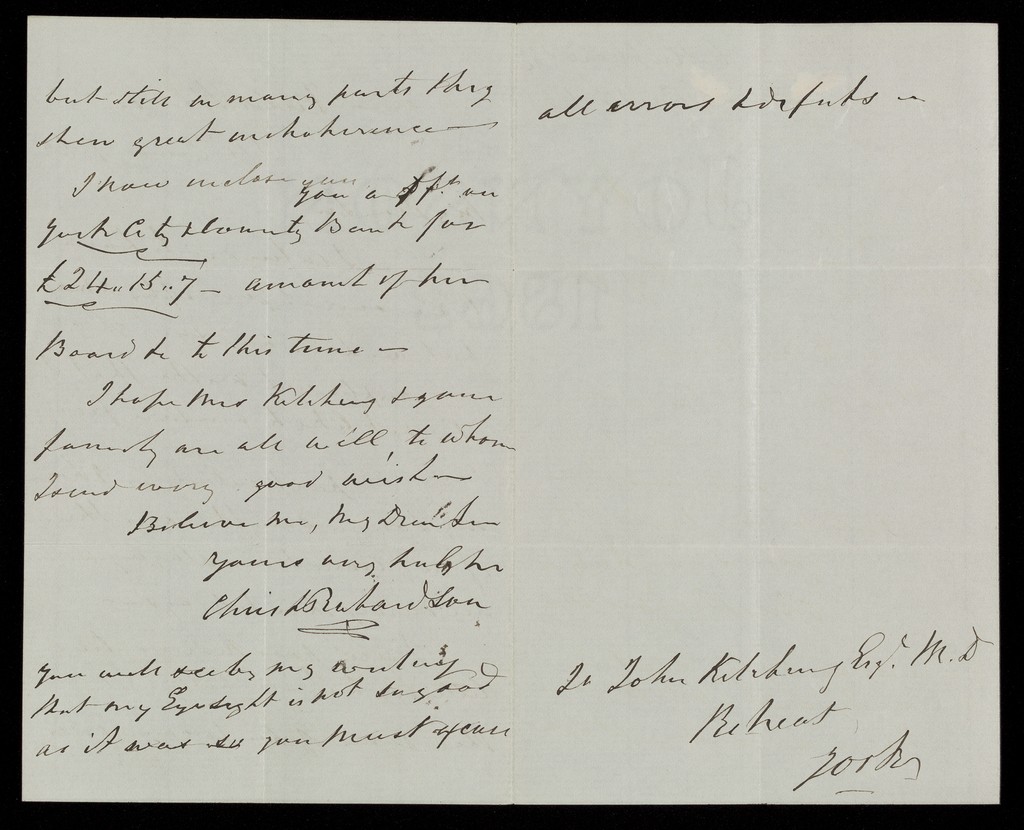 but still in many parts they
shew great incoherence —
I now inclose you
you a on
York City & County Bank for
£24..15..7 — amount of her
Board &c to this time —
I hope Mrs Kitching & your
family are all well, to whom
I send every good wish —
Believe me, My Dear Sir
Yours very truly
Christr Richardson
You will see by my writing
that my Eyesight is not so good
as it was so you must excuse
all errors & defects —
To John Kitching Esqr. M.D
Retreat
York